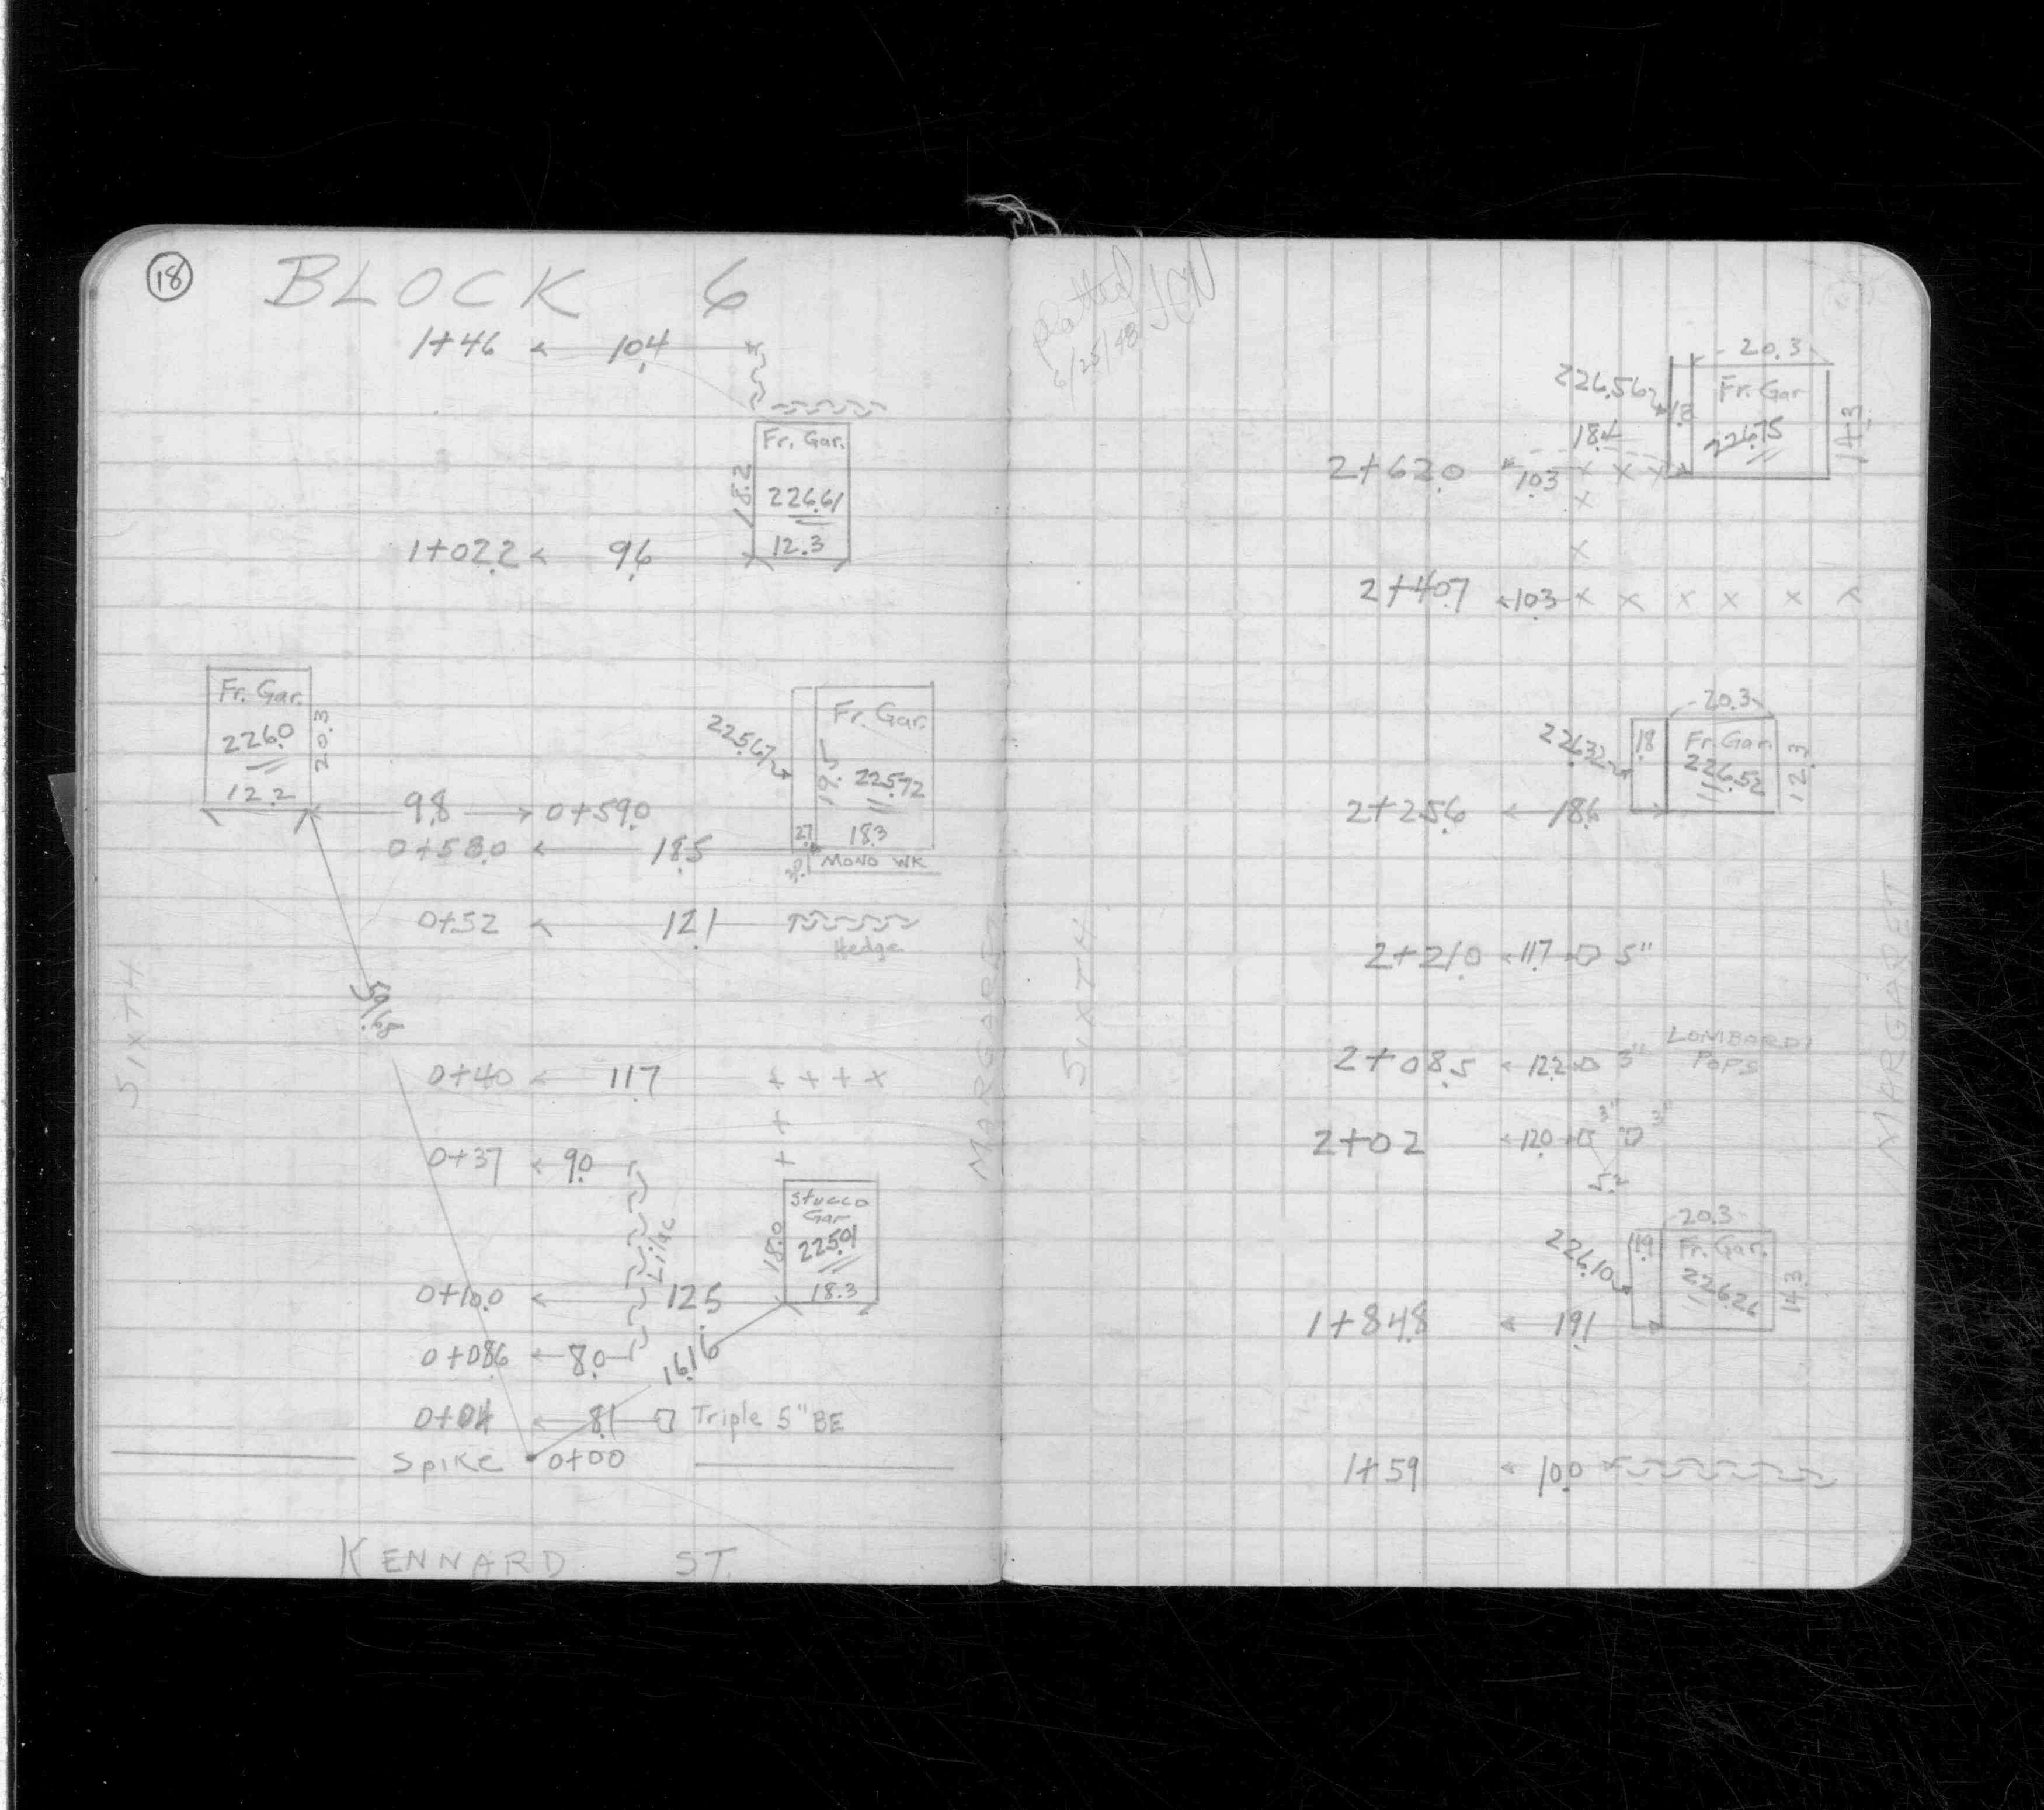 18
BLOCK 6
1+46 10.4
Fr. Gar.
18.2
226.61
1+02.2 9.6 12.3
Fr. Gar.
226.0
20.3
12.2
Fr. Gar.
225.67
19.5
225.72
9.8 0+59.0
2.7 18.3
0+58.0 18.5
MONO WK
0+52 12.1
Hedge
SIXTH
MARGARET
59.65
0+40 11.7
0+37 9.0
Lilac
Stucco
Gar
18.0
225.01
18.3
0+10.0 12.5
0+08.6 8.0 16.16
0+04 8.1 Triple 5" BE
Spike 0+00
KENNARD ST.
platted JCN
6/25/48
20.3
226.56
1.8
Fr. Gar
226.75
14.3
18.4
2+62.0 10.3
2+40.7 10.3
20.3
226.32
1.8
Fr. Gar.
226.52
12.3
2+25.6 18.6
SIXTH
MARGARET
2+21.0 11.7 5"
LOMBARDI
POPS
2+08.5 12.2 3"
2+02 12.0 3" 3"
5.2
20.3
226.10
1.9
Fr. Gar.
226.26
14.3
1+84.8 19.1
1+59 10.0